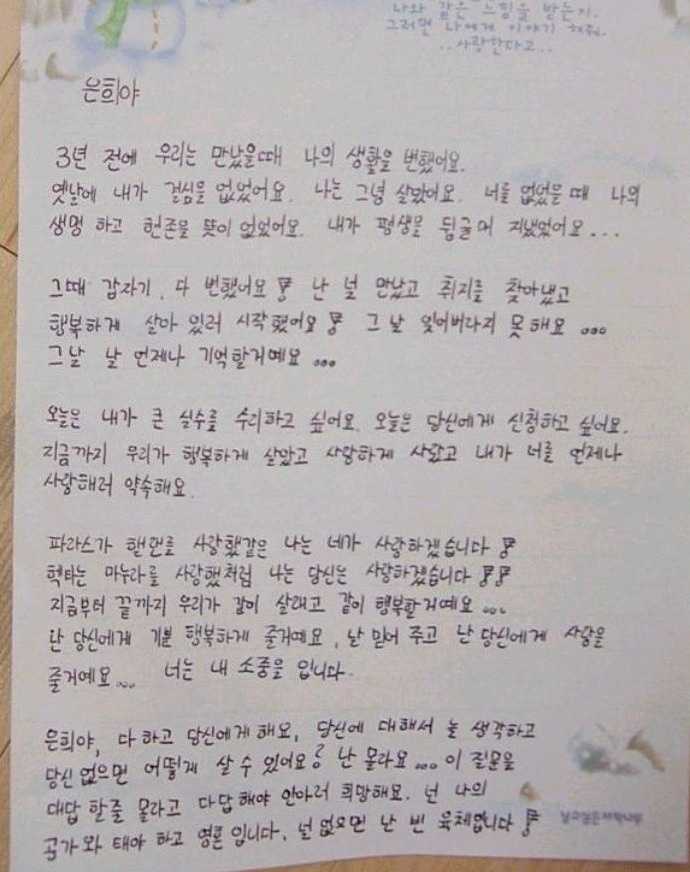 나와 같은 느낌을 받는지.
그러면 나에게 이야기 해줘.
..사랑한다고..
은희야
3년 전에 우리는 만났을때 나의 생활을 변했어요.
옛날에 내가 결심을 없었어요. 나는 그녕 살았어요. 너를 없었을 때 나의
생명 하고 현존을 뜻이 없었어요. 내가 평생을 뒹글며 지냈었어요...
그때 갑자기, 다 변했어요! 난 널 만났고 취지를 찾아냈고
행복하게 살아 있러 시작했어요! 그 날 잊어버라지 못해요...
그날 날 언제나 기억할거예요...
오늘은 내가 큰 실수를 수리하고 싶어요. 오늘은 당신에게 신청하고 싶어요.
지금까지 우리가 행복하게 살았고 사랑하게 사랐고 내가 너를 언제나
사랑해러 약속해요.
파라스가 핼랜를 사랑했같은 나는 네가 사랑하겠습니다!
헥타는 마누라를 사랑했처럼 나는 당신은 사랑하겠습니다!!
지금부터 끝까지 우리가 같이 살래고 같이 행복할거예요...
난 당신에게 기쁨 행복하게 줄거예요, 날 믿어 주고 난 당신에게 사랑을
줄거예요... 너는 내 소중을 입니다.
은희야, 다 하고 당신에게 해요, 당신에 대해서 늘 생각하고
당신 없으면 어떻게 살 수 있어요? 난 몰라요... 이 질문을
대답 할줄 몰라고 다답해야 안아러 희망해요. 넌 나의
공가와 태야 하고 영혼 입니다, 널 없으면 난 빈 육체입니다!